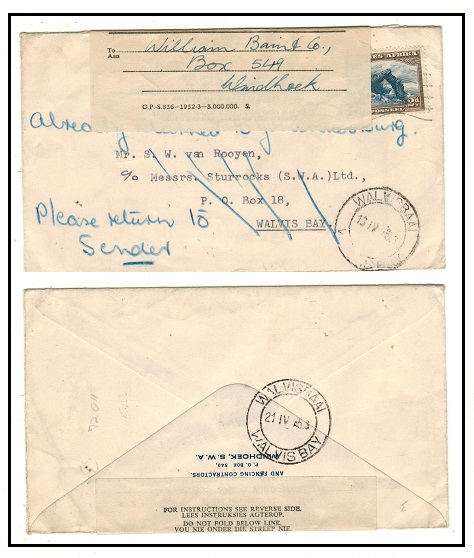 To
Aan
William Bain & Co.,
Box 549
Windhoek
G.P.-S.836—1952-3—3.000.000. S.
ES AFRIKA
POSSEEL
Mr. S. W. van Rooyen,
c/o Messrs. Sturrocks (S.W.A.) Ltd.,
P. O. Box 18,
WALVIS BAY.
Please return to
Sender
WALVISBAAI
WALVISBAAI
21 IV 53
WALVIS BAY
WINDHOEK, S.W.A.
P.O. BOX 549,
AND FENCING CONTRACTORS.
FOR INSTRUCTIONS SEE REVERSE SIDE.
LEES INSTRUKSIES AGTEROP.
DO NOT FOLD BELOW LINE.
VOU NIE ONDER DIE STREEP NIE.